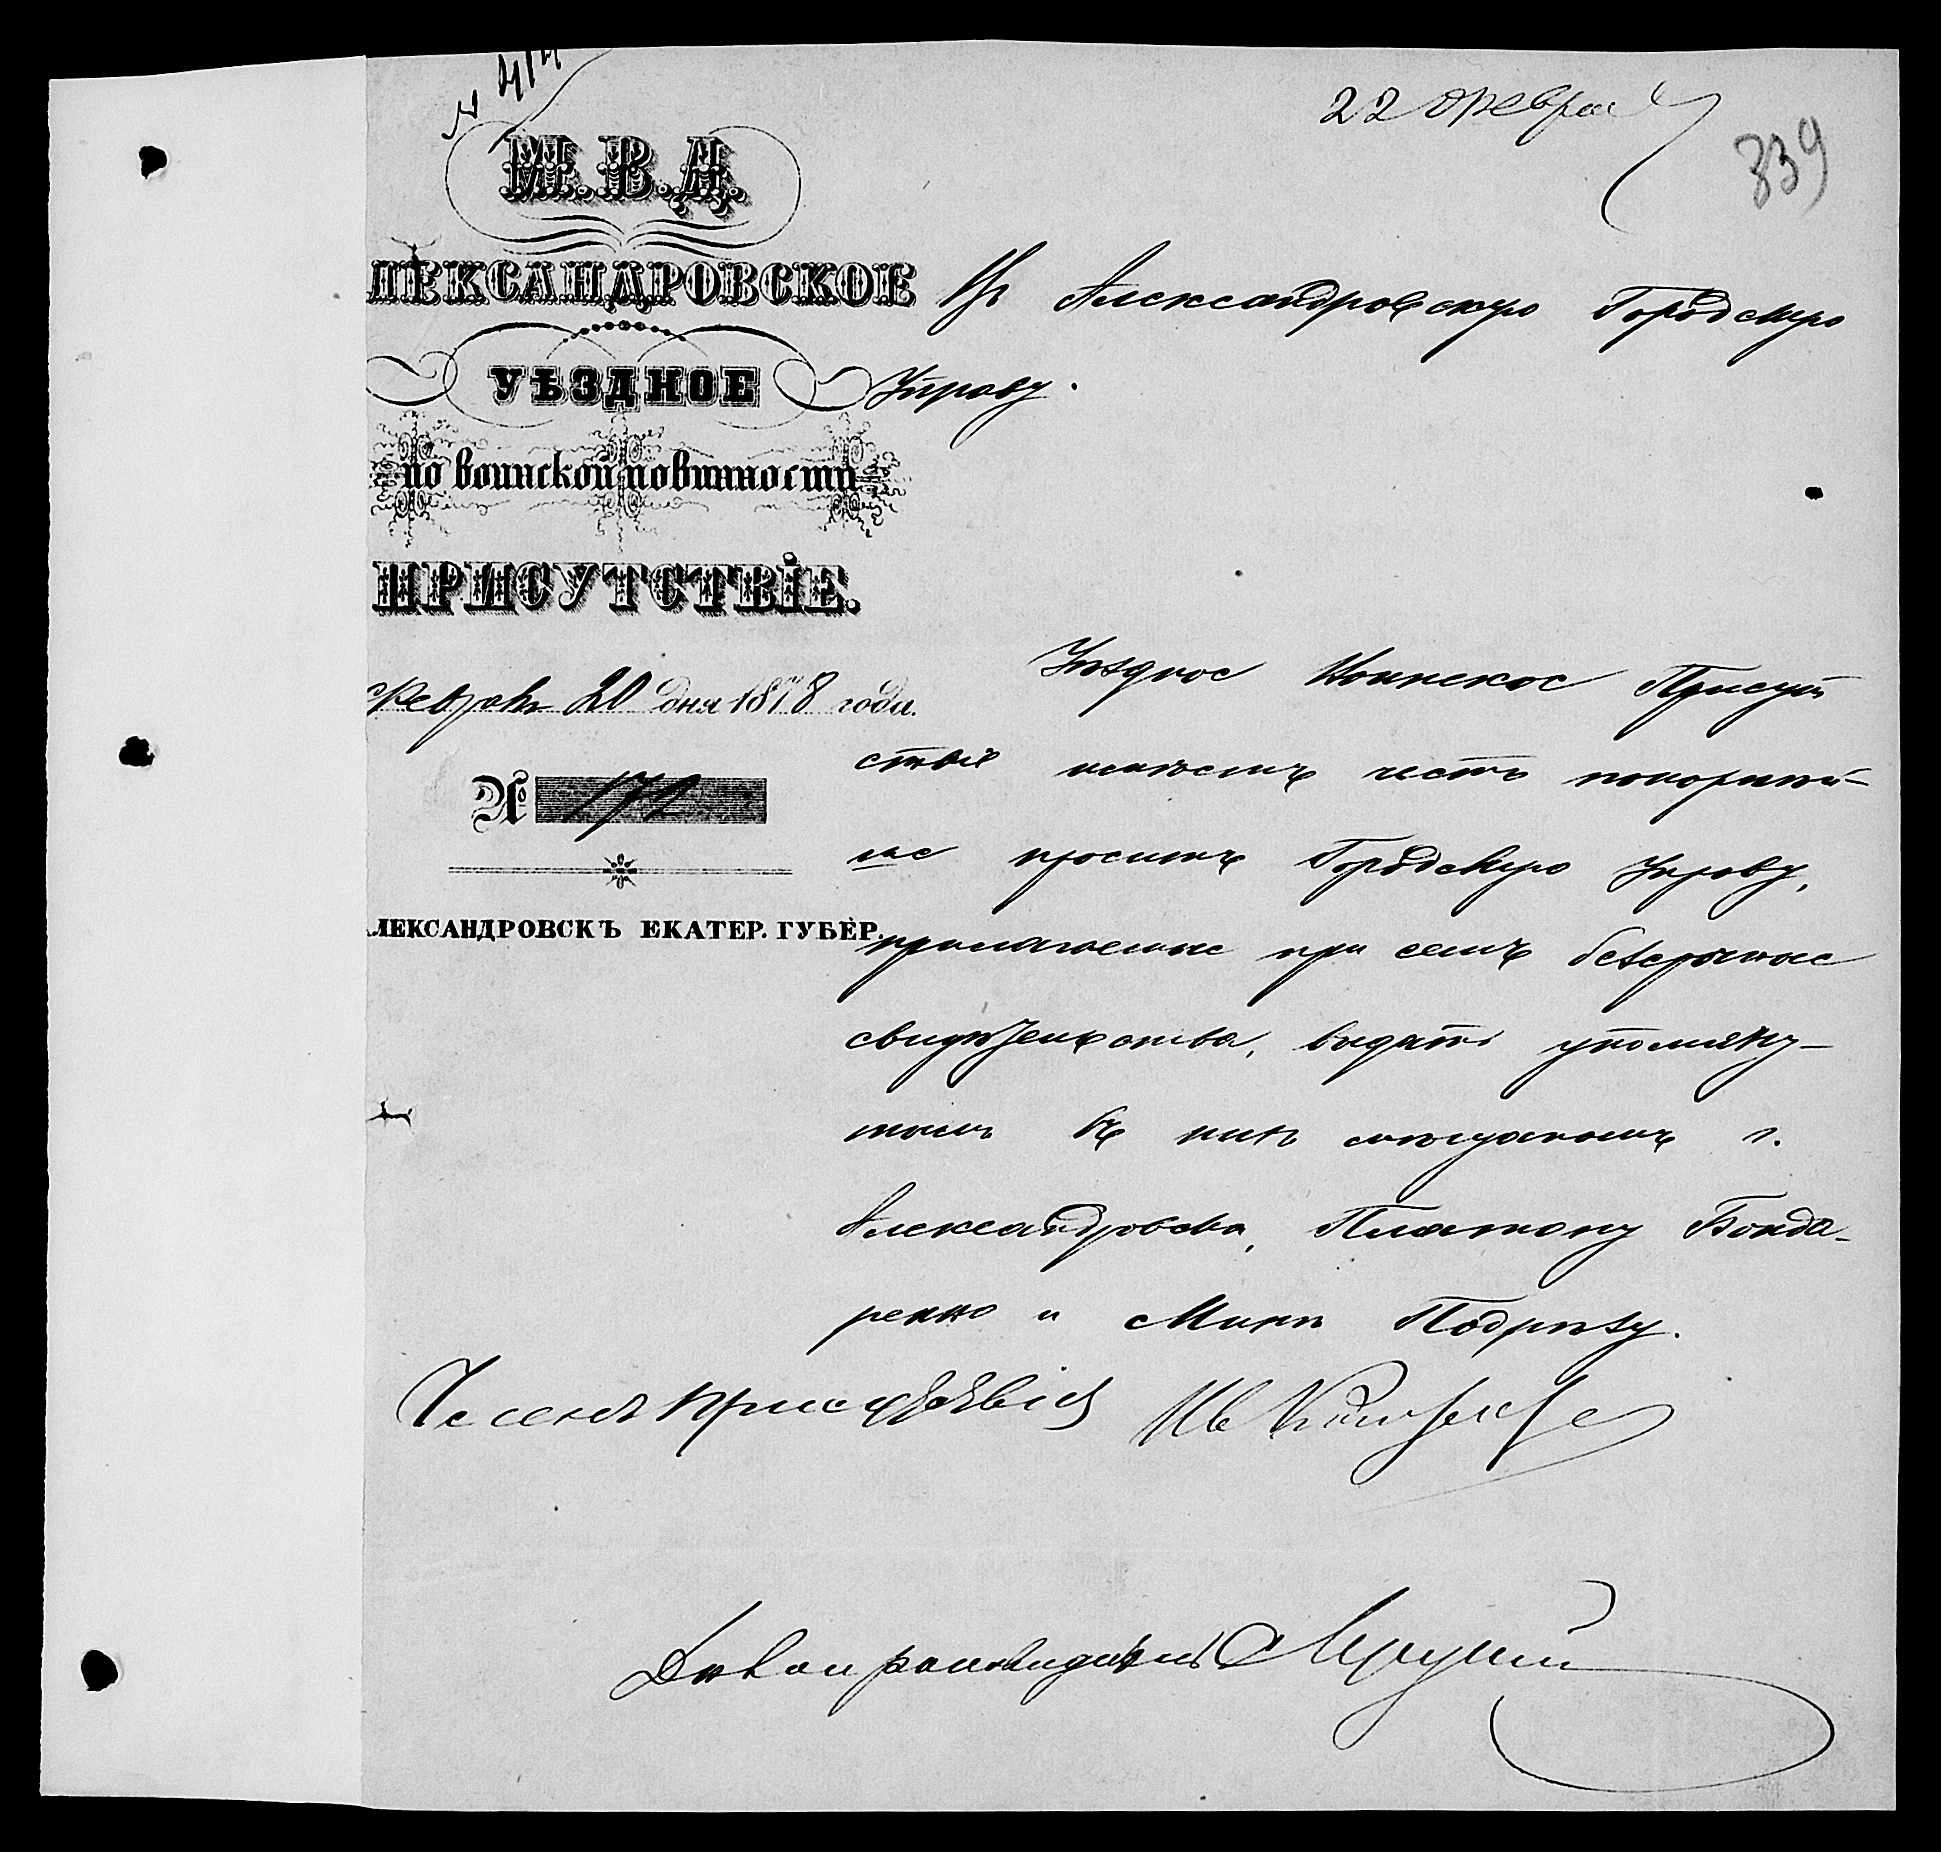 N 414
22 Февра
339
М.В.Д.
ЛЕКСАНДРОВСКОЕ
УѢЗДНОЕ
по воинской повинности
ПРИСУТСТВІЕ.
Февраля 20 дня 1878 года.
№ 172
ЛЕКСАНДРОВСКЪ ЕКАТЕР. ГУБЕР.
Въ Александровскую Городскую
Управу.
Уѣздное Воинское Присут
ствіе имѣетъ честь покорнѣй-
ше проситъ Городскую Управу,
прилагаемые при семъ безсрочные
свидѣтельства, выдать упомяну-
тымъ въ нихъ мѣщанамъ г.
Александровска, Платону Бонда-
ренко и Минѣ Подрѣзу.
Членъ присутствія
Дѣлопроизводитель